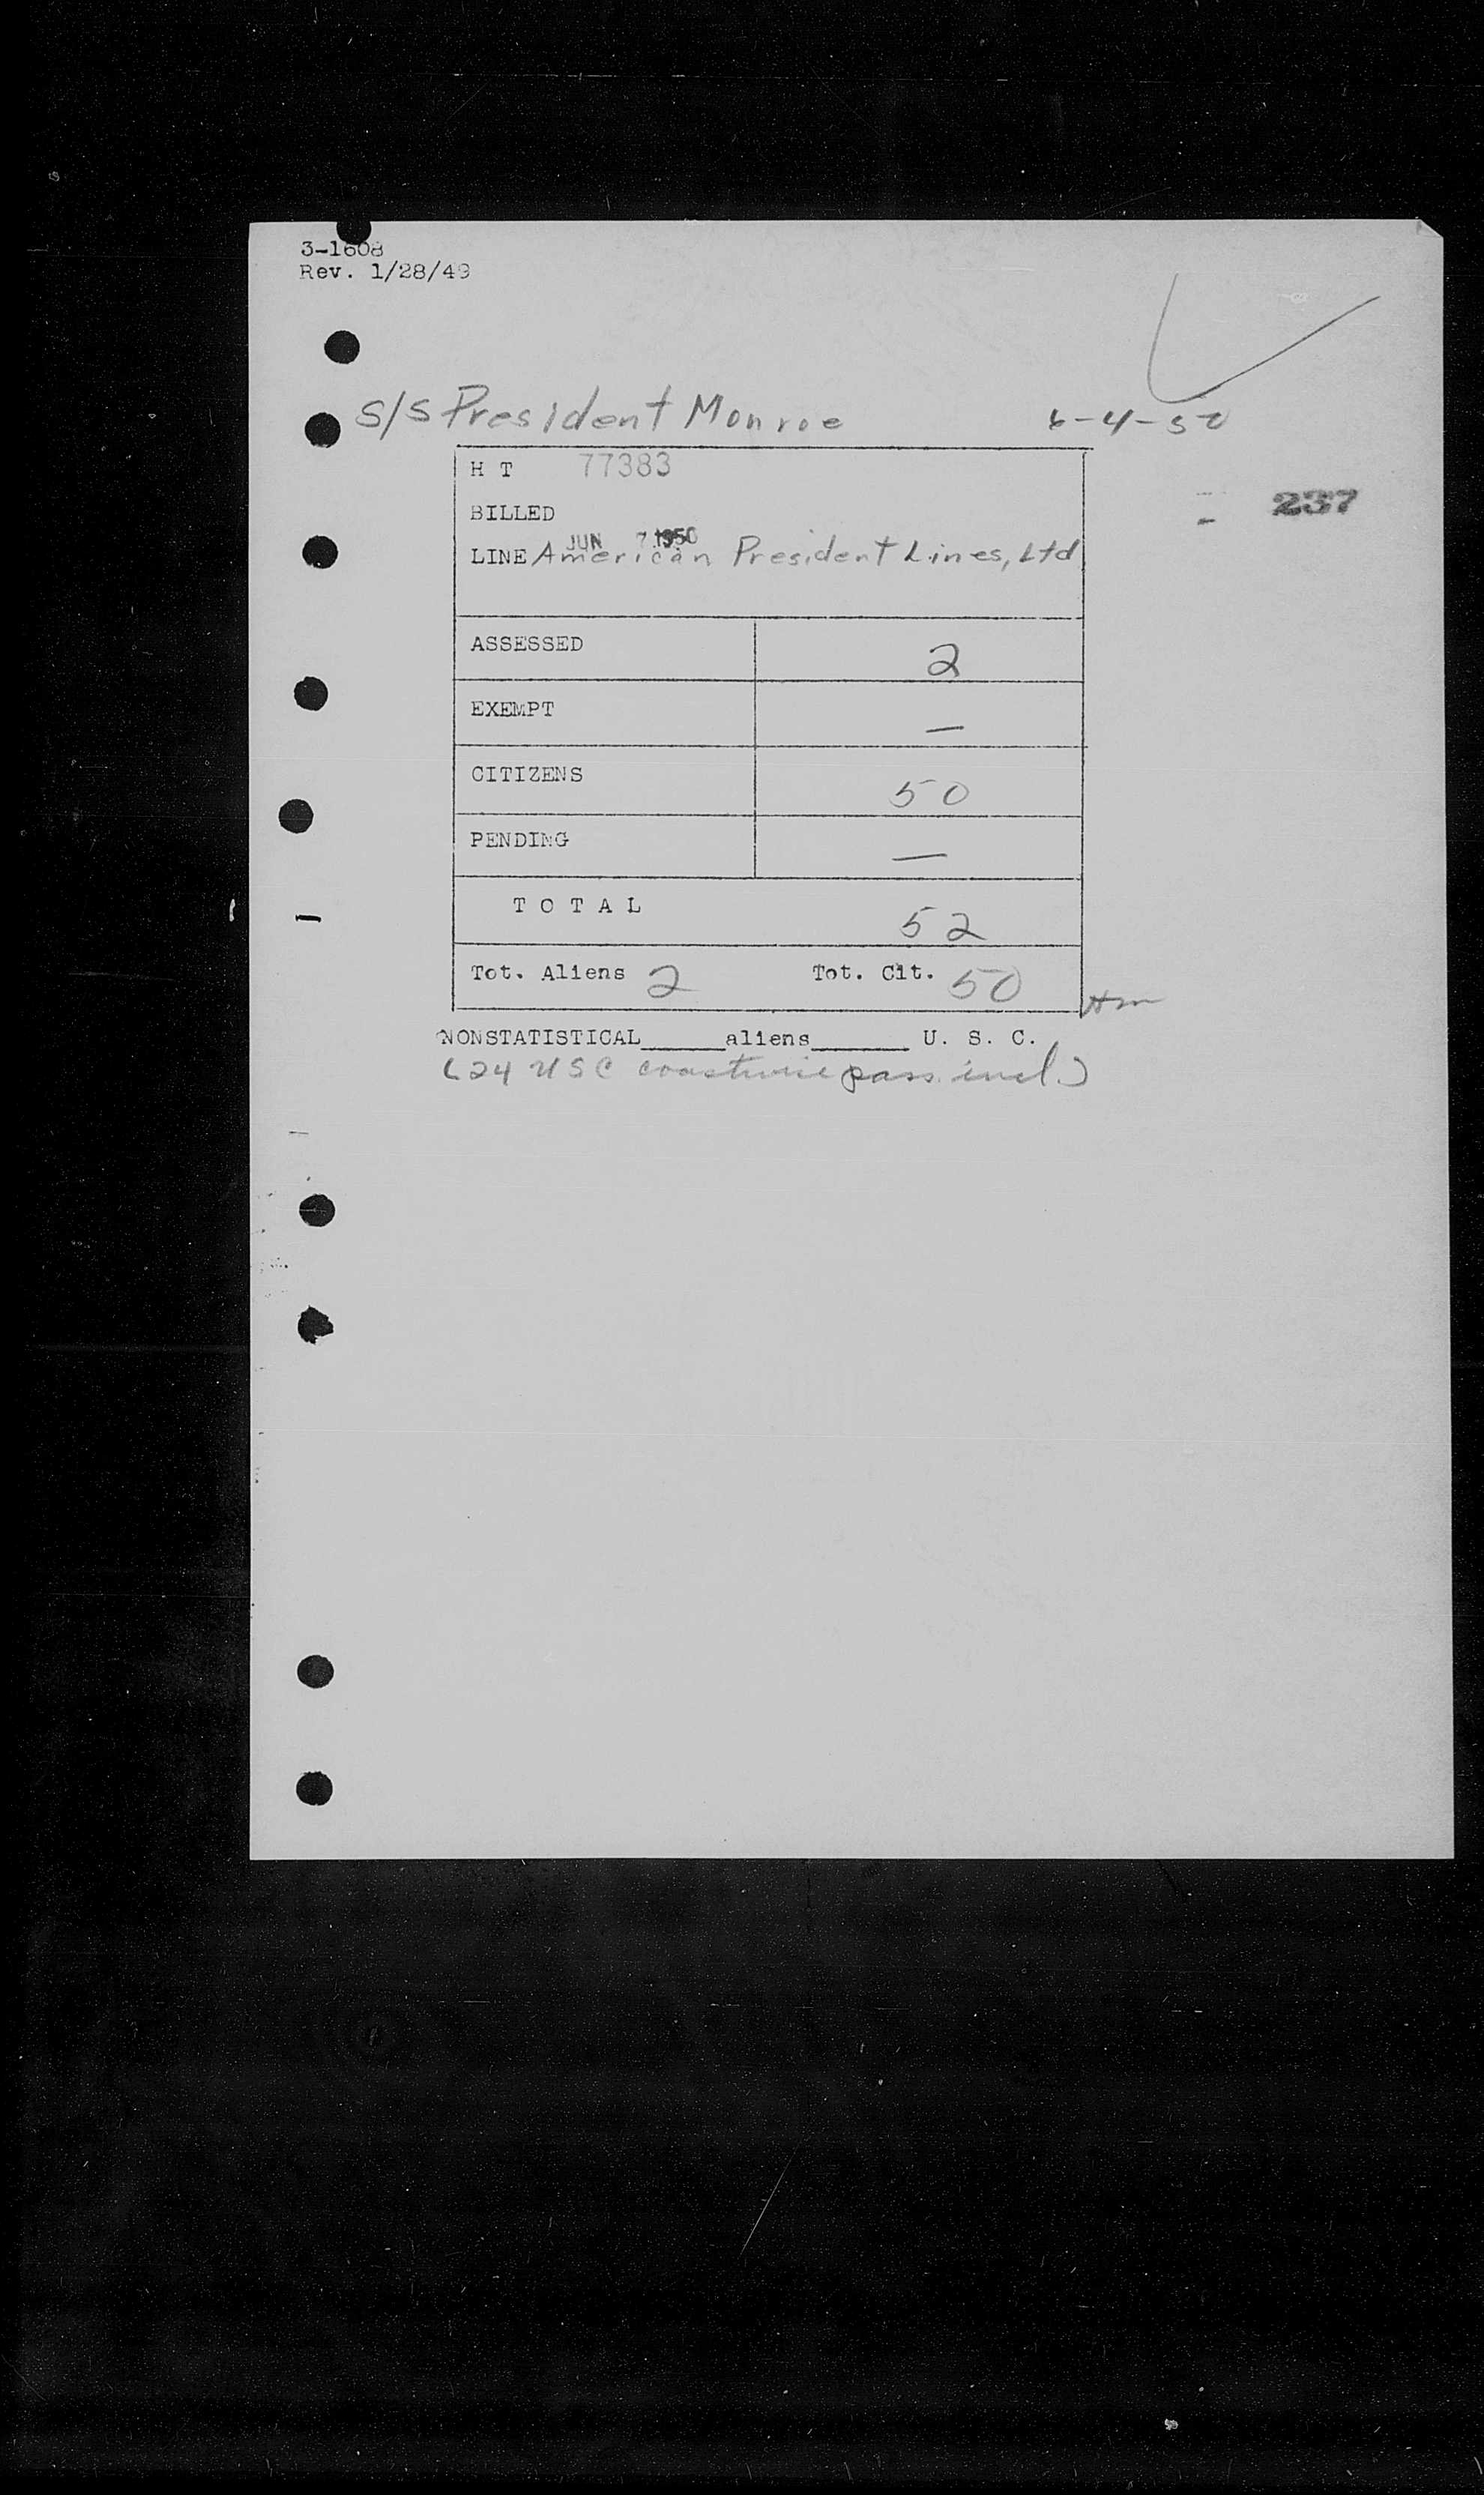 3-1608
Rev. 1/28/49
S/S President Monroe 6-4-50
H T 77383
237
BILLED
JUN 7 1950
LINE American President Lines, Ltd
ASSESSED 2
EXEMPT —
CITIZENS 50
PENDING —
T O T A L 52
Tot. Aliens 2 Tot. Cit. 50
NONSTATISTICAL______aliens_______ U. S. C.
(24 USC coastwise pass. incl.)